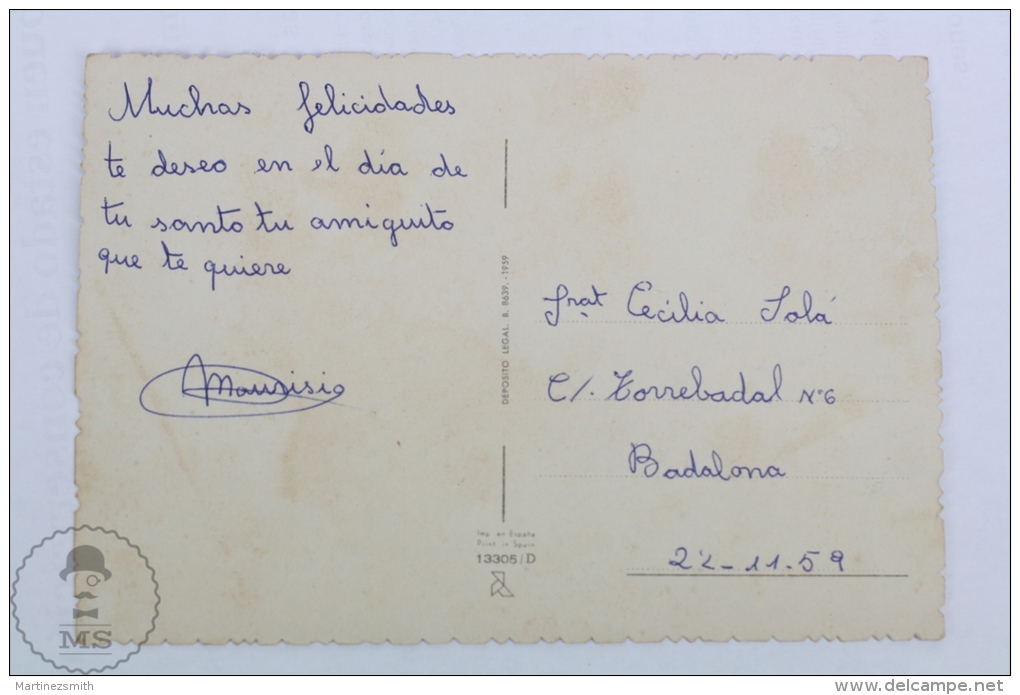 Muchas felicidades
te deseo en el día de
tu santo tu amiguito
que te quiere
Maurisio
DEPOSITO LEGAL B. 8639.-1959
Srat Cecilia Solá
C/. Torrebadal Nº6
Badalona
22-11-59
Imp. en España
Print. in Spain
13305/D
MS
Martinezsmith
www.delcampe.net